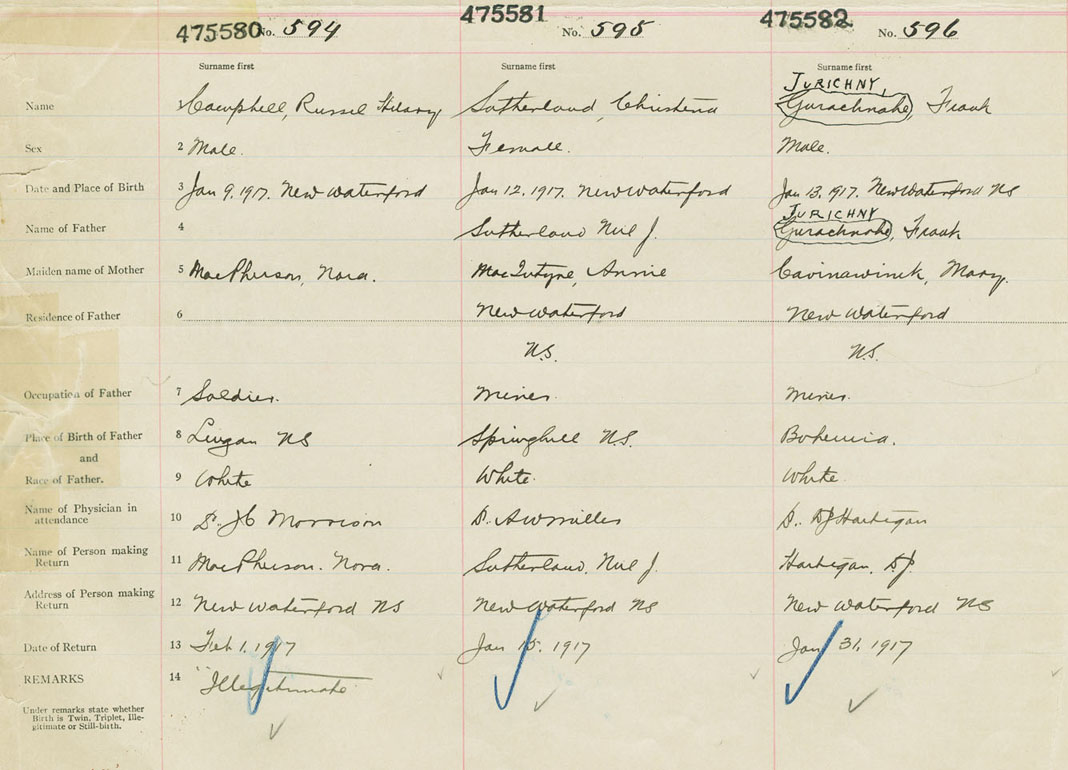 475580 No. 594 475581 No. 595 475582 No. 596
Surname first Surname first Surname first
JURICHNY,
Name 1 Campbell, Russel Hilary Sutherland, Christena Gurachnake, Frank
Sex 2 Male. Female. Male.
Date and Place of Birth 3 Jan 9. 1917. New Waterford Jan 12. 1917. New Waterford Jan 13. 1917. New Waterford NS
JURICHNY
Name of Father 4 Sutherland Neil J. Gurachnake, Frank
Maiden name of Mother 5 MacPherson, Nora. MacIntyre, Annie Mary.
Residence of Father 6 New Waterford New Waterford
N.S. N.S.
Occupation of Father 7 Soldier. Miner Miner.
Place of Birth of Father 8 Lingan NS Springhill N.S. Bohemia.
and
Race of Father. 9 White White. White.
Name of Physician in
attendance 10 Dr. JC Morrison Dr. AW Miller Dr. DJ Hartigan
Name of Person making
Return 11 MacPherson. Nora. Sutherland, Neil J. Hartigan, DJ.
Address of Person making
Return 12 New Waterford NS New Waterford NS New Waterford NS
Date of Return 13 Feb 1. 1917 Jan 15. 1917 Jan 31. 1917
REMARKS 14 "Illegitimate
Under remarks state whether
Birth is Twin, Triplet, Ille-
gitimate or Still-birth.